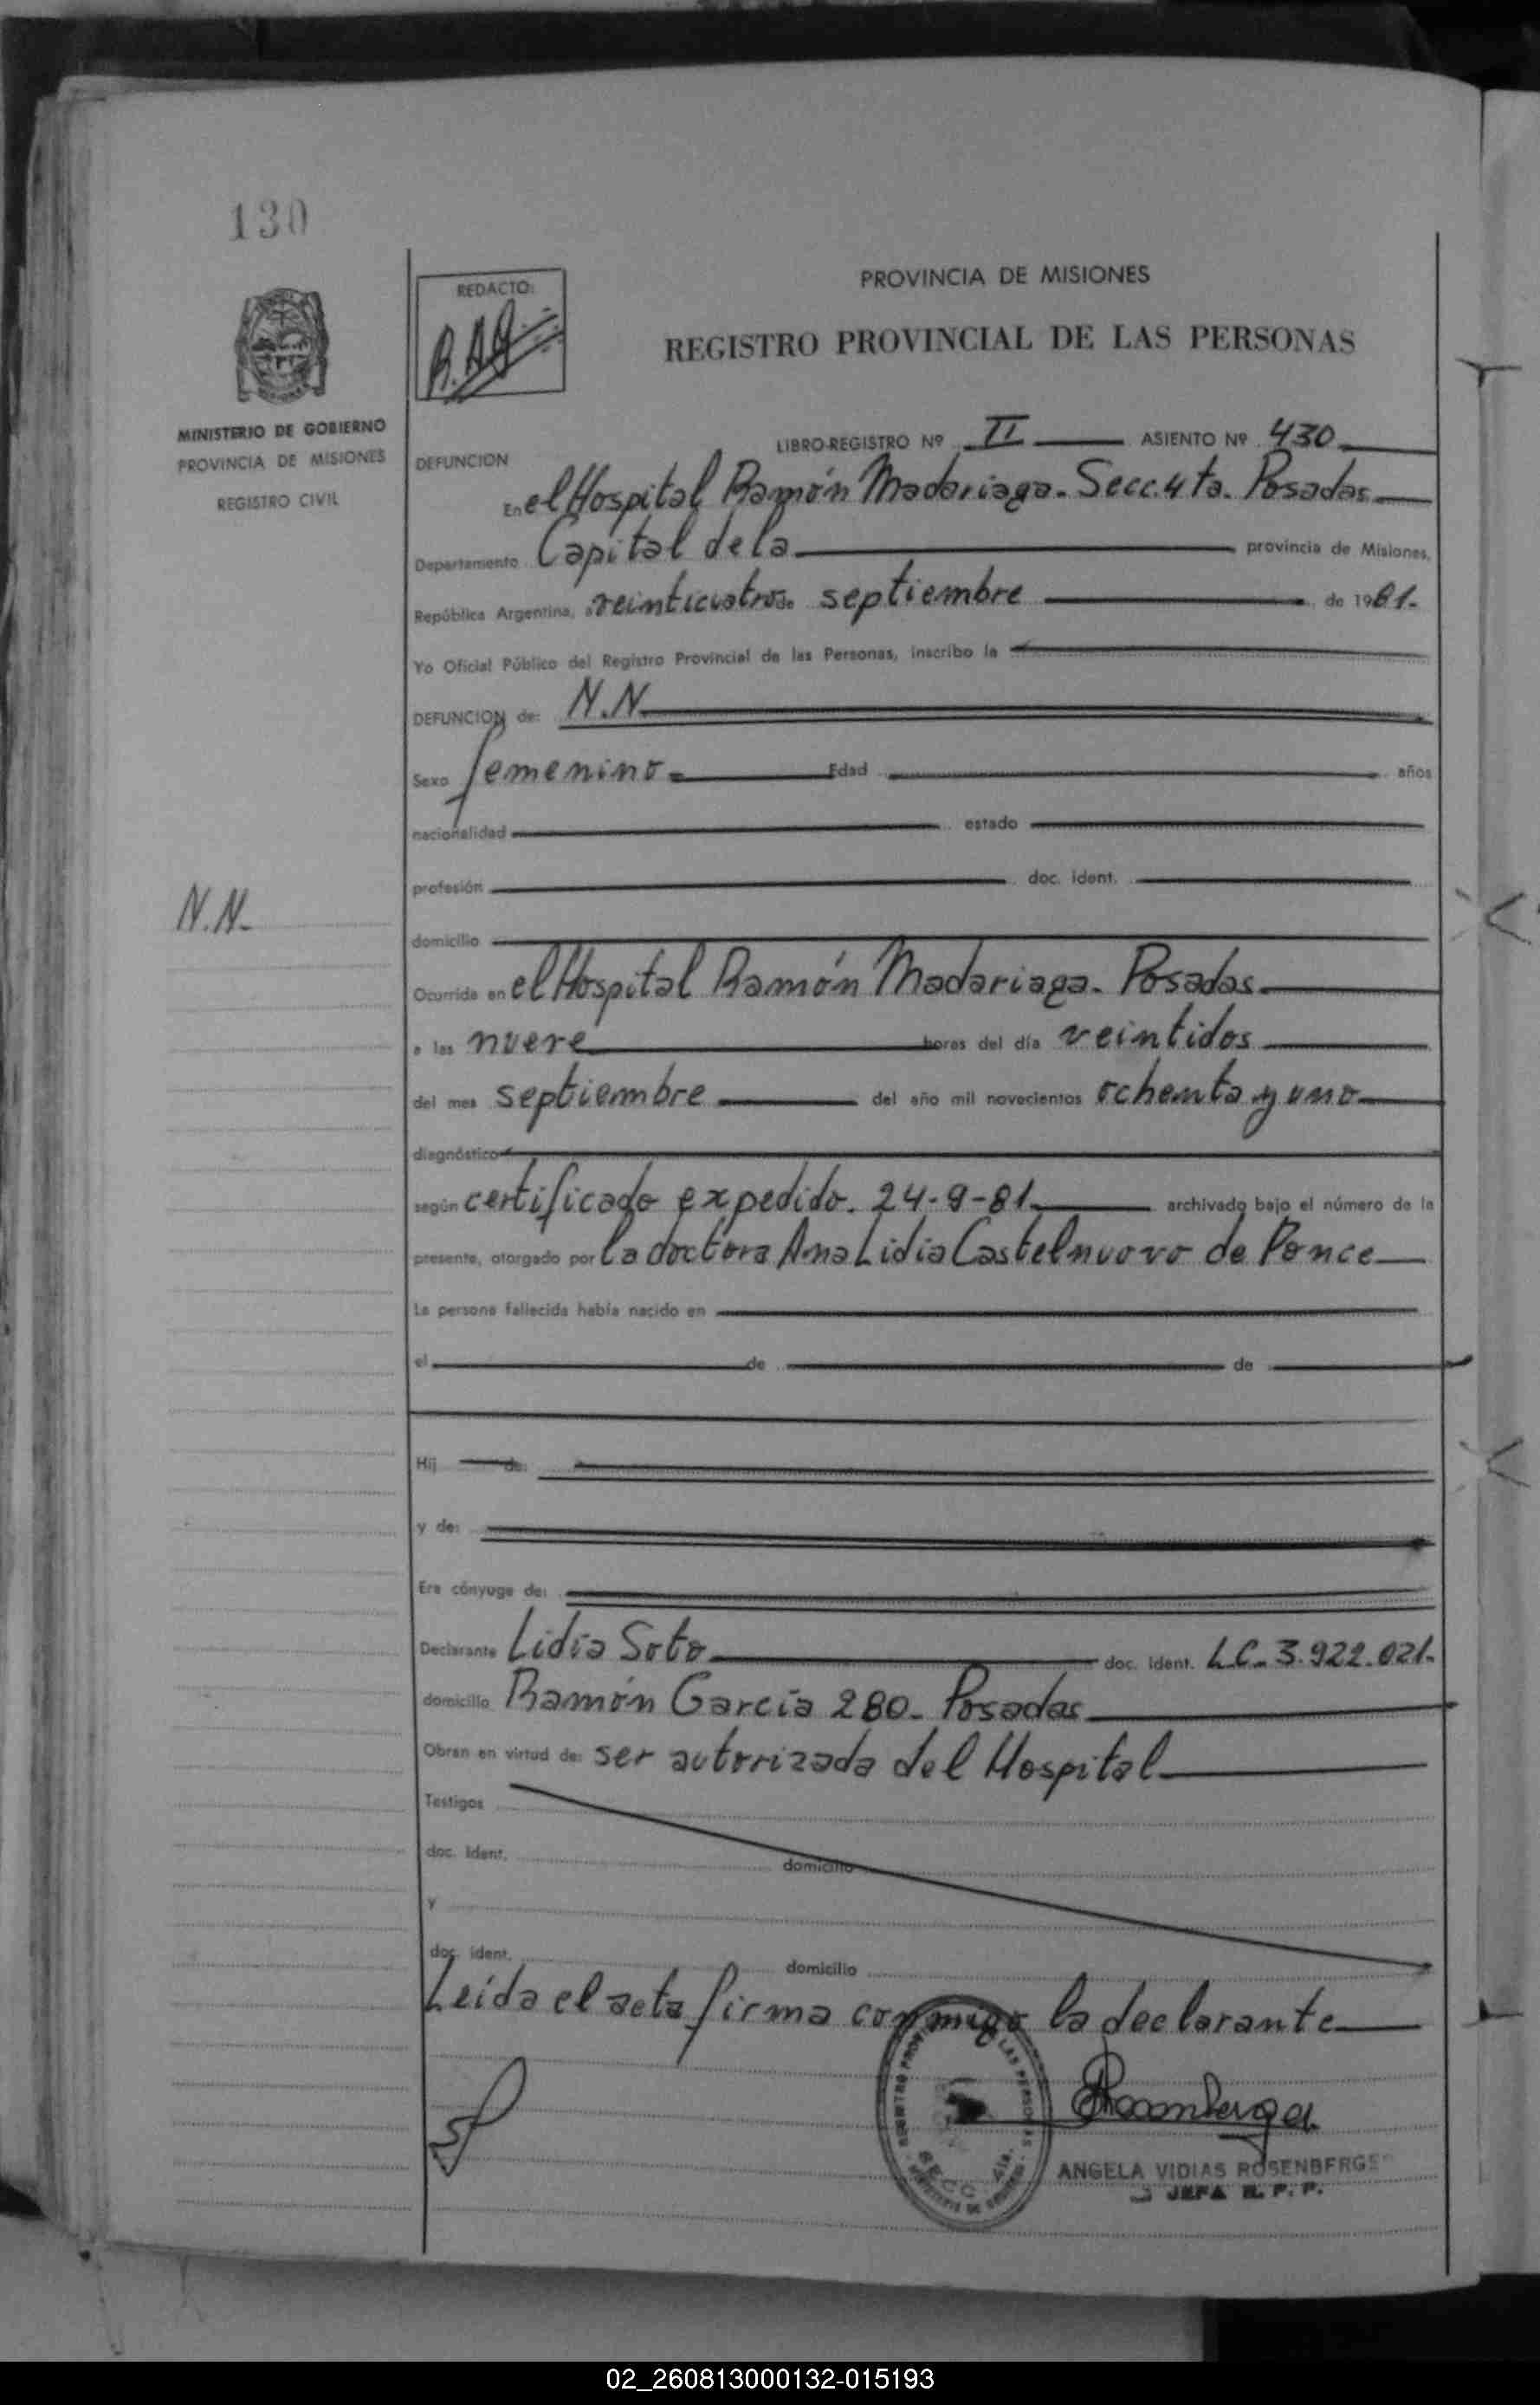 130
REDACTO:
PROVINCIA DE MISIONES
REGISTRO PROVINCIAL DE LAS PERSONAS
MINISTERIO DE GOBIERNO
PROVINCIA DE MISIONES
REGISTRO CIVIL
LIBRO-REGISTRO Nº II ASIENTO Nº 430
DEFUNCION
En el Hospital Ramón Madariaga. Secc. 4ta. Posadas
Departamento Capital de la provincia de Misiones,
República Argentina, a veinticuatro de septiembre de 1981.
Yo Oficial Público del Registro Provincial de las Personas, inscribo la
DEFUNCION de: N.N
Sexo femenino Edad años
nacionalidad estado
profesión doc. ident.
N.N.
domicilio
Ocurrida en el Hospital Ramón Madariaga. Posadas.
a las nueve horas del día veintidos
del mes septiembre del año mil novecientos ochenta y uno
diagnóstico
según certificado expedido. 24-9-81 archivado bajo el número de la
presente, otorgado por la doctora Ana Lidia Castelnuovo de Ponce
La persona fallecida había nacido en
el de de
Hij de:
y de:
Era cónyuge de:
Declarante Lidia Soto doc. ident. L.C. 3.922.021.
domicilio Ramón García 280. Posadas
Obran en virtud de: ser autorizada del Hospital
Testigos
doc. ident. domicilio
y
doc. ident. domicilio
Leída el acta firma conmigo la declarante
ANGELA VIDIAS ROSENBERGER
JEFA R. P. P.
02_260813000132-015193